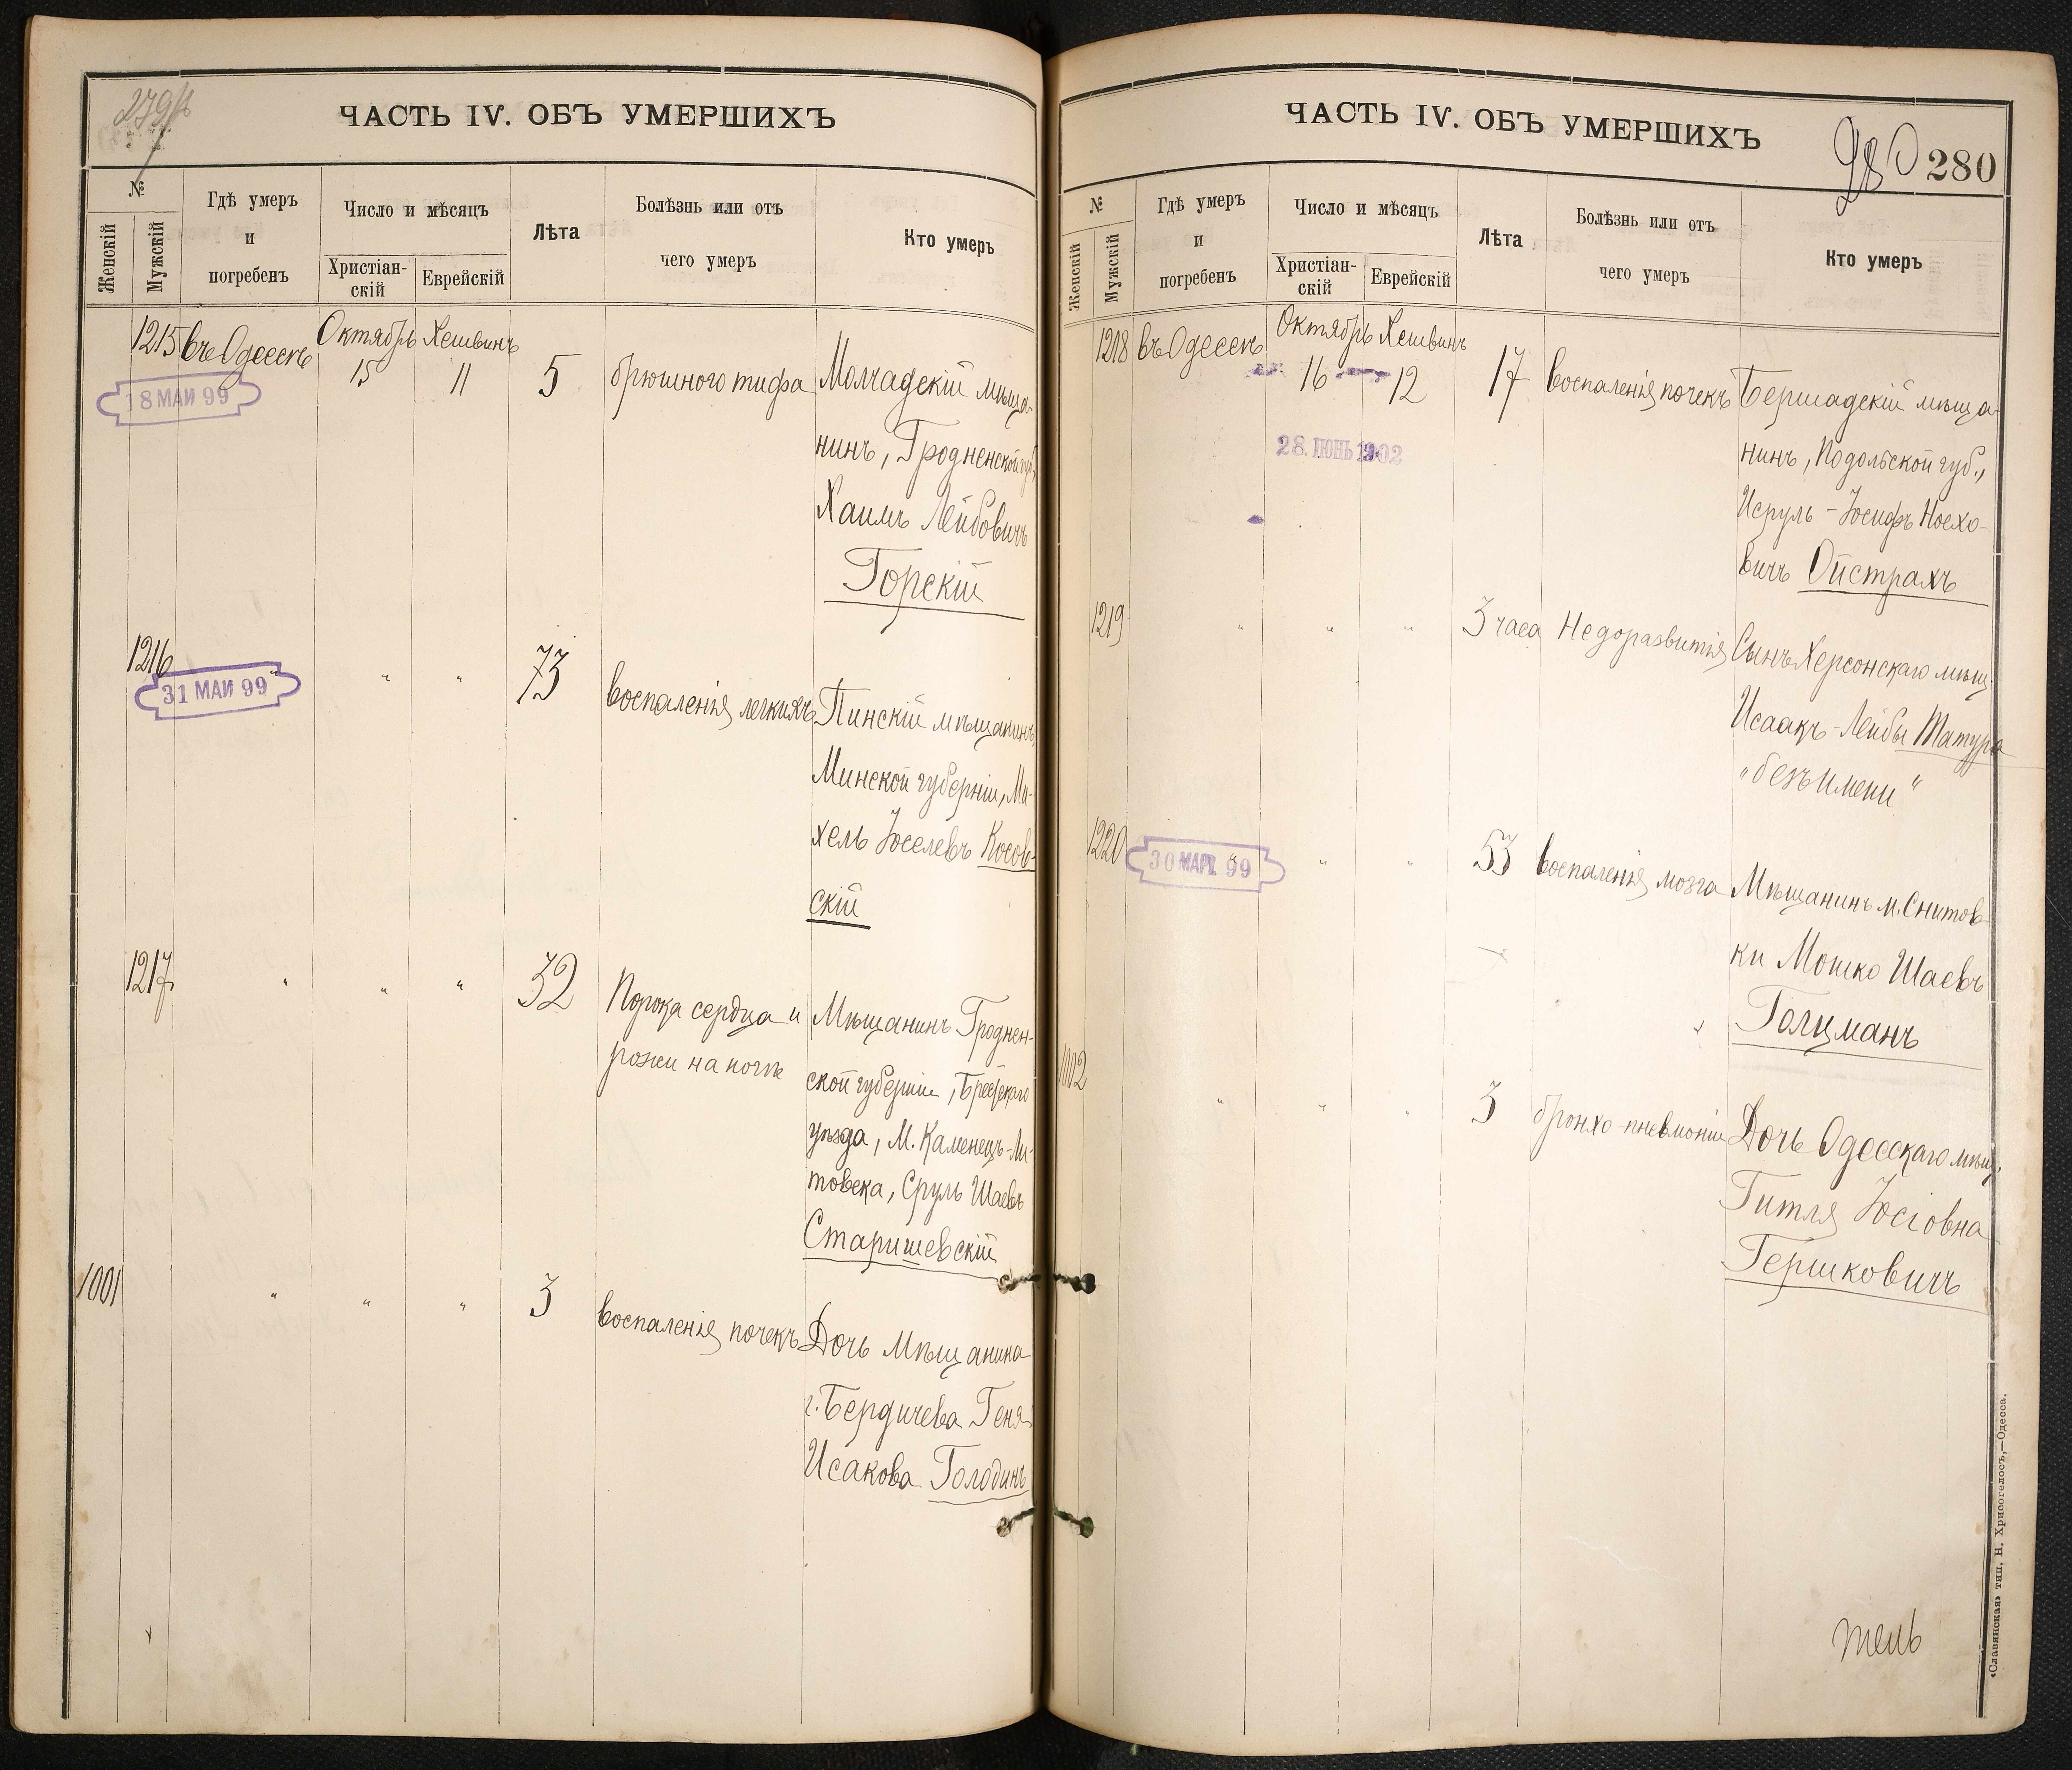 279
ЧАСТЬ IV. ОБЪ УМЕРШИХЪ
№
Женскій
Мужскій
Гдѣ умеръ
и
погребенъ
Число и мѣсяцъ
Христіан-
скій
Еврейскій
Лѣта
Болѣзнь или отъ
чего умеръ
Кто умеръ
1215 въ Одессѣ Октябрь Хешвинъ
15 11 5 брюшного тифа Молчадскій мѣща-
18 МАИ 99
нинъ, Гродненской губ.,
Хаимъ Лейбовичъ
Горскій
1216 " " " 73 воспаленія легкихъ Пинскій мѣщанинъ,
31 МАИ 99
Минской губерніи, Ми-
хель Іоселевъ Косов-
скій
1217 " " " 32 Порока сердца и Мѣщанинъ Гроднен-
рожи на ногѣ ской губерніи, Брестскаго
уѣзда, М. Каменецъ-Ли-
товска, Сруль Шаевъ
Старишевскій
1001 " " " 3 воспаленія почекъ Дочь Мѣщанина
г. Бердичева Геня
Исакова Голодинъ
ЧАСТЬ IV. ОБЪ УМЕРШИХЪ
280 280
№
Женскій
Мужскій
Гдѣ умеръ
и
погребенъ
Число и мѣсяцъ
Христіан-
скій
Еврейскій
Лѣта
Болѣзнь или отъ
чего умеръ
Кто умеръ
1218 въ Одессѣ Октябрь Хешвинъ
16 12 17 воспаленія почекъ Бершадскій мѣща-
28. ІЮНЬ 1902
нинъ, Подольской губ.,
Исруль-Іосифъ Носхо-
вичъ Ойстрахъ
1219 " " " 3 часа Недоразвитія Сынъ Херсонскаго мѣщ.
Исаакъ-Лейбы Матура
"безъ имени"
1220 " " " 53 воспаленія мозга Мѣщанинъ м. Снитов-
30 МАР. 99
ки Мошко Шаевъ
Голцманъ
1002 " " " 3 бронхо-пневмоніи Дочь Одесскаго мѣщ.
Гитля Іосіовна
Гершковичъ
тель
«Славянская» тип. Н. Хрисогелосъ,—Одесса.